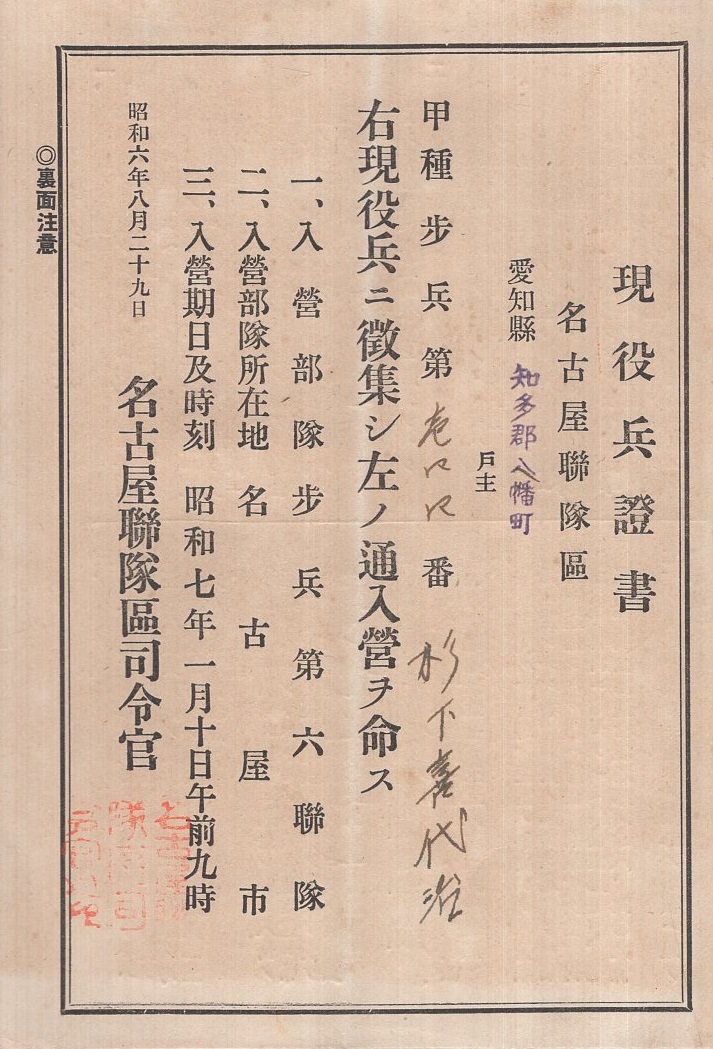 現役兵證書
名古屋聯隊區
愛知縣 知多郡八幡町
戸主
甲種步兵第 番 杉下喜代治
右現役兵ニ徵集シ左ノ通入營ヲ命ス
一、入營部隊步兵第六聯隊
二、入營部隊所在地名古屋市
三、入營期日及時刻 昭和七年一月十日午前九時
昭和六年八月二十九日 名古屋聯隊區司令官
◎裏面注意